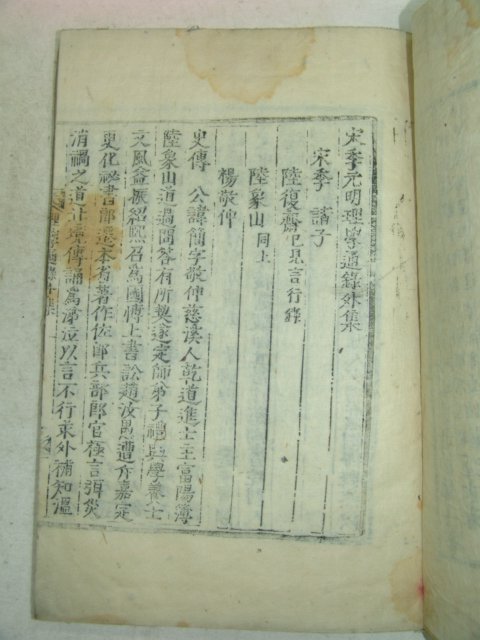 宋季元明理學通錄外集
宋季 諸子
陸復齋 已見言行錄
陸象山 同上
楊敬仲
史傳 公諱簡字敬仲慈溪人乾道進士主富陽簿
陸象山道過問答有所契遂定師弟子禮興學養士
文風益振紹熙召爲國博上書訟趙汝愚遭斥嘉定
更化秘書郞遷本省著作佐郞兵部郞官極言弭災
消禍之道計 傳誦爲 泣以言不行求外補知溫